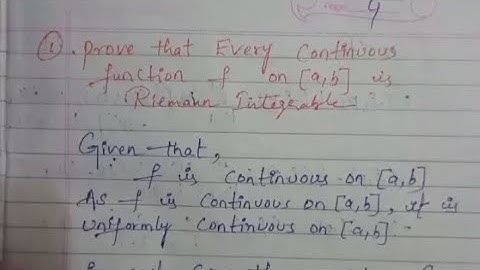 9
①. Prove that Every Continuous
function f on [a,b] is
Riemann Integrable.
Given that,
f is continuous on [a,b]
As f is continuous on [a,b], it is
uniformly continuous on [a,b].